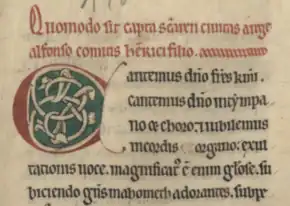 Quomodo sit capta scāren ciuitas a rege
alfonso comitis henrici filio.
Cantemus dn̄o fr̄es km̄i.
cantemus dn̄o in tympa
no & choro: iubilemus
in cordis organo: exul
tationis uoce. magnificat᷒ ē enim gl̄ose. su
biciendo gn̄s mahometh adorantes. subıx